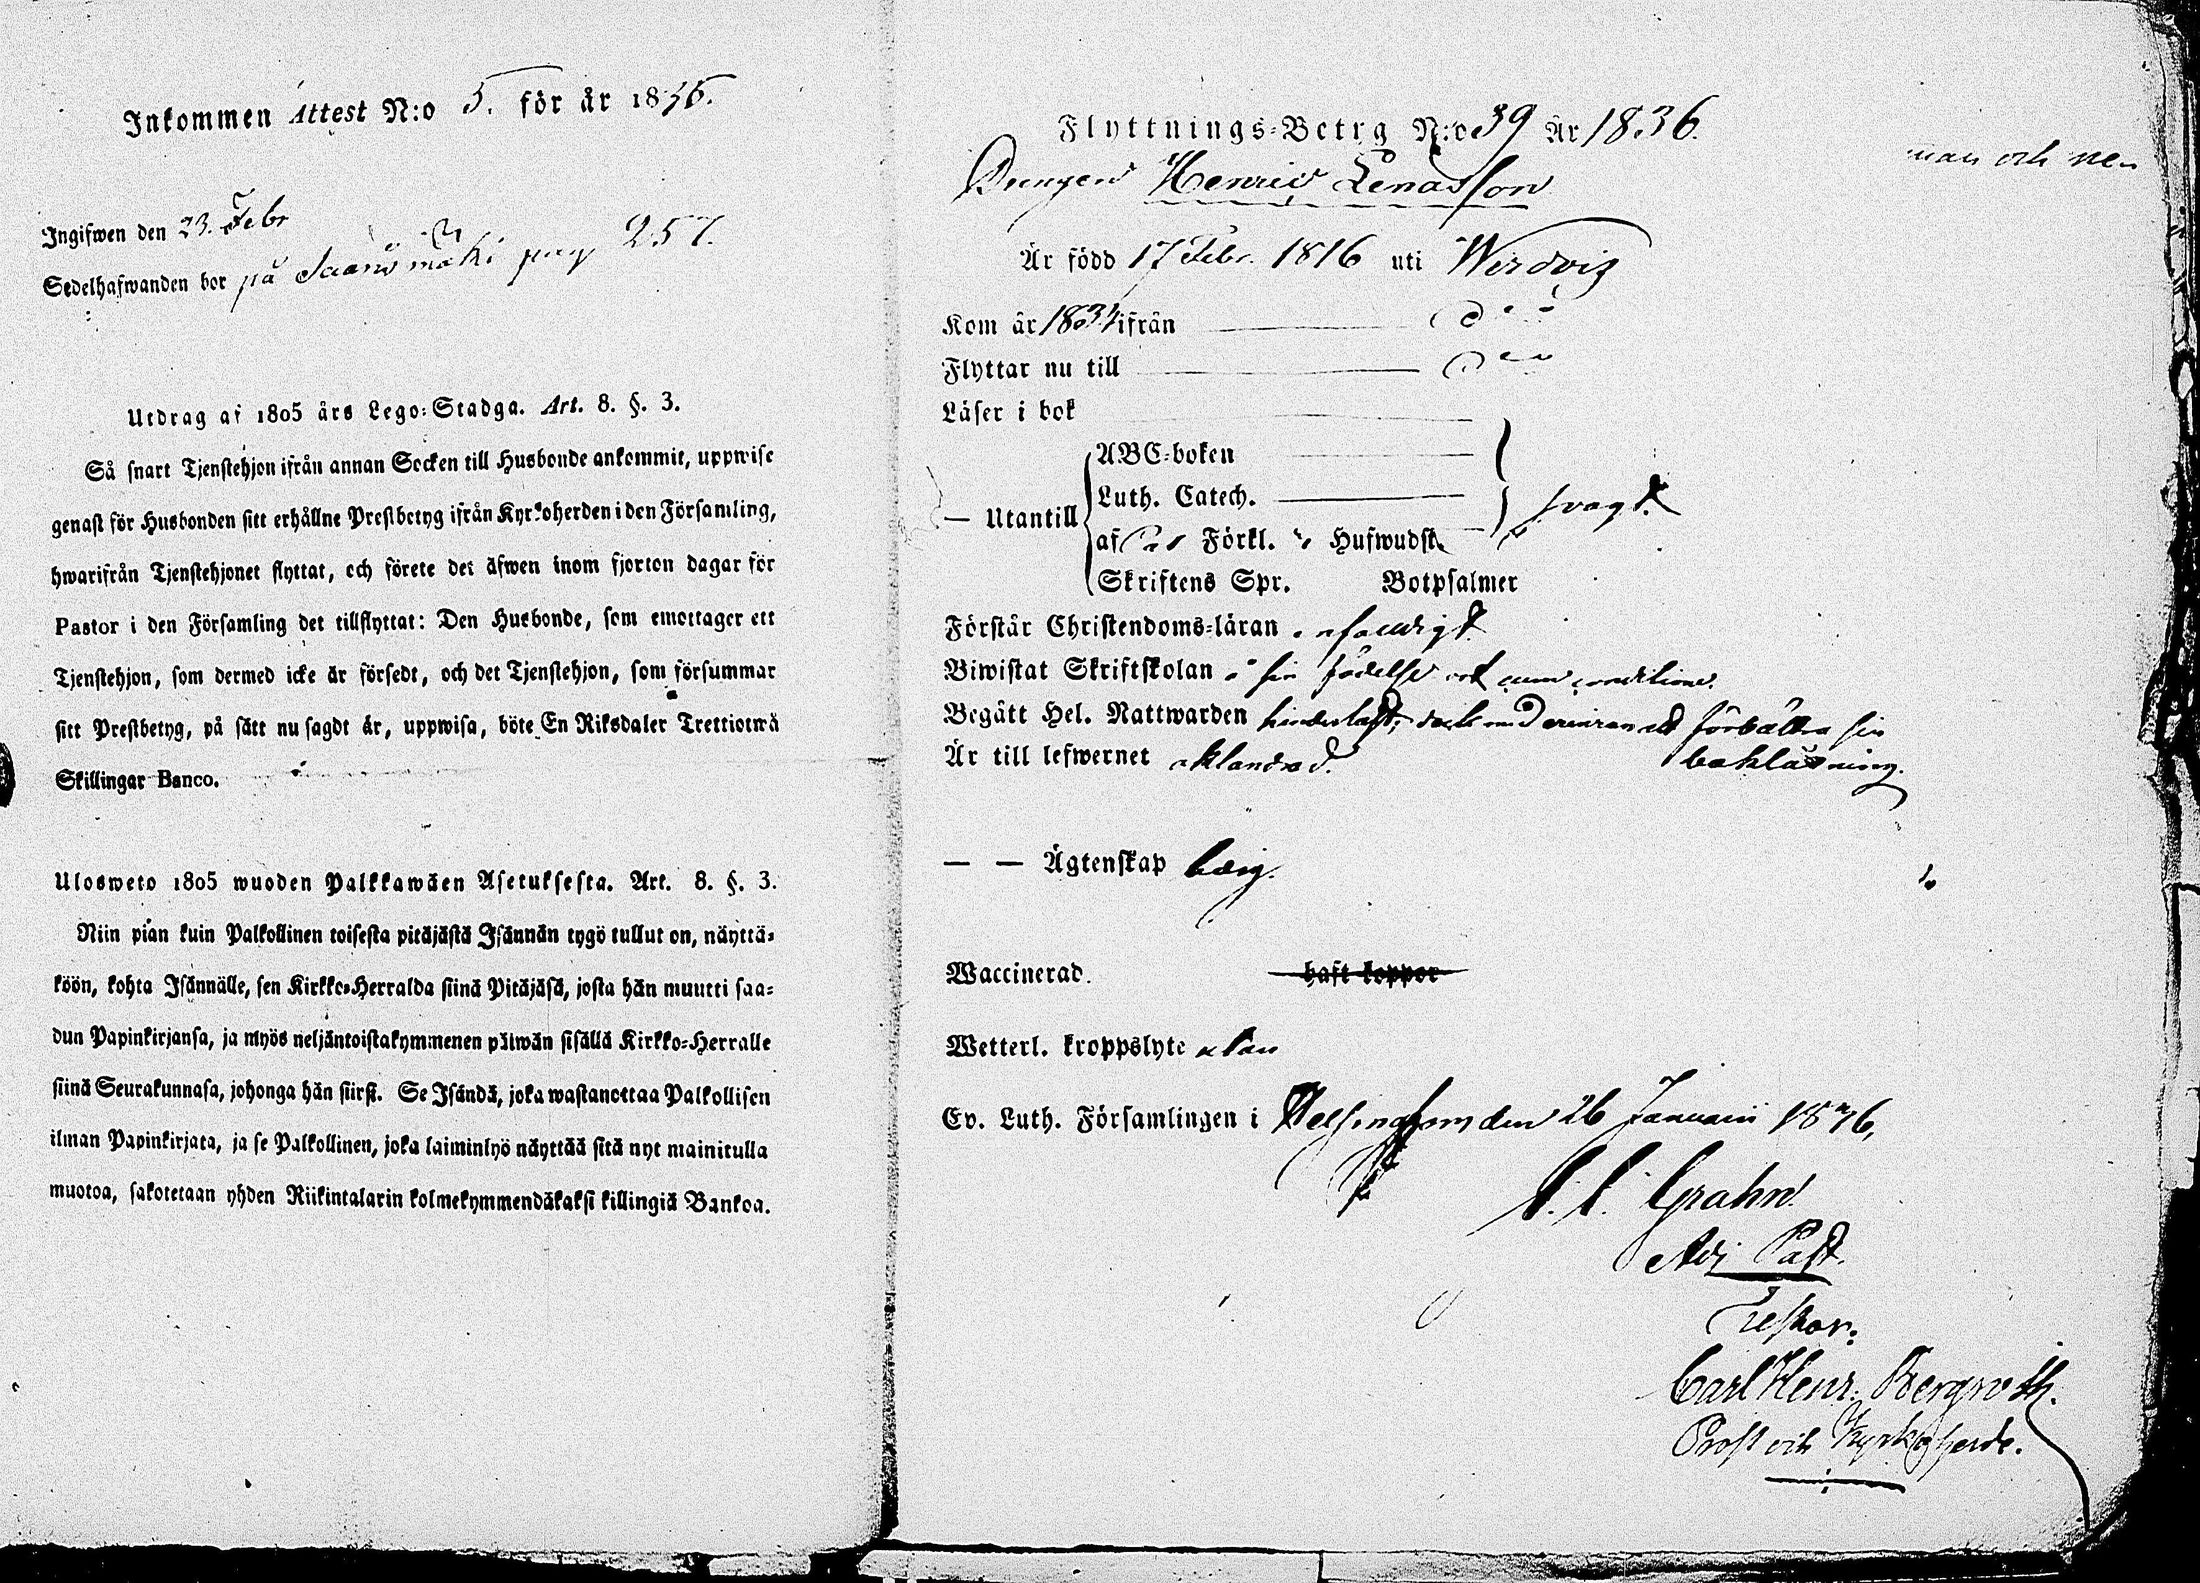 Inkommen Attest N:o 5. för år 1836.
Ingifwen den 23. Febr
Sedelhafwanden bor på mäki pag 257.
Utdrag af 1805 års Lego-Stadga. Art. 8. §. 3.
Så snart Tjenstehjon ifrån annan Socken till Husbonde ankommit, uppwise
genast för Husbonden sitt erhållne Prestbetyg ifrån Kyrkoherden i den Församling,
hwarifrån Tjenstehjonet flyttat, och förete det äfwen inom fjorton dagar för
Pastor i den Församling det tillflyttat: Den Husbonde, som emottager ett
Tjenstehjon, som dermed icke är försedt, och det Tjenstehjon, som försummar
sitt Prestbetyg, på sätt nu sagdt är, uppwisa, böte En Riksdaler Trettiotwå
Skillingar Banco.
Ulosweto 1805 wuoden Palkkawäen Asetuksesta. Art. 8. §. 3.
Niin pian kuin Palkollinen toisesta pitäjästä Isännän tygö tullut on, näyttä-
köön, kohta Isännälle, sen Kirkko-Herralda siinä Pitäjäsä, josta hän muutti saa-
dun Papinkirjansa, ja myös neljäntoistakymmenen päiwän sisällä Kirkko-Herralle
siinä Seurakunnasa, johonga hän siirsi. Se Isändä, joka wastanottaa Palkollisen
ilman Papinkirjata, ja se Palkollinen, joka laiminlyö näyttää sitä nyt mainitulla
muotoa, sakotetaan yhden Riikintalarin kolmekymmendäkaksi killingiä Bankoa.
Flyttnings-Betyg N:o 39 År 1836.
man och
Drengen Henric Lenasson
Är född 17 Febr. 1816 uti
Kom år 1834 ifrån
Flyttar nu till
Läser i bok
— Utantill
ABC-boken
Luth. Catech.
svagt
af Förkl. Hufwudst.
Skriftens Spr. Botpsalmer
Förstår Christendoms-läran enfaldigt
Biwistat Skriftskolan i sin födelse ort cum conditione.
Begått Hel. Nattwarden med förbättra sin
bokläsning.
Är till lefwernet oklandrad.
— — Ägtenskap ledig.
Waccinerad. haft koppor
Wetterl. kroppslyte utan
Ev. Luth. Församlingen i Helsingfors den 26 Januarii 1836.
Grahn.
Adj Past.
Testor:
Carl Henr. Bergroth.
Prost och Kyrkoherde.